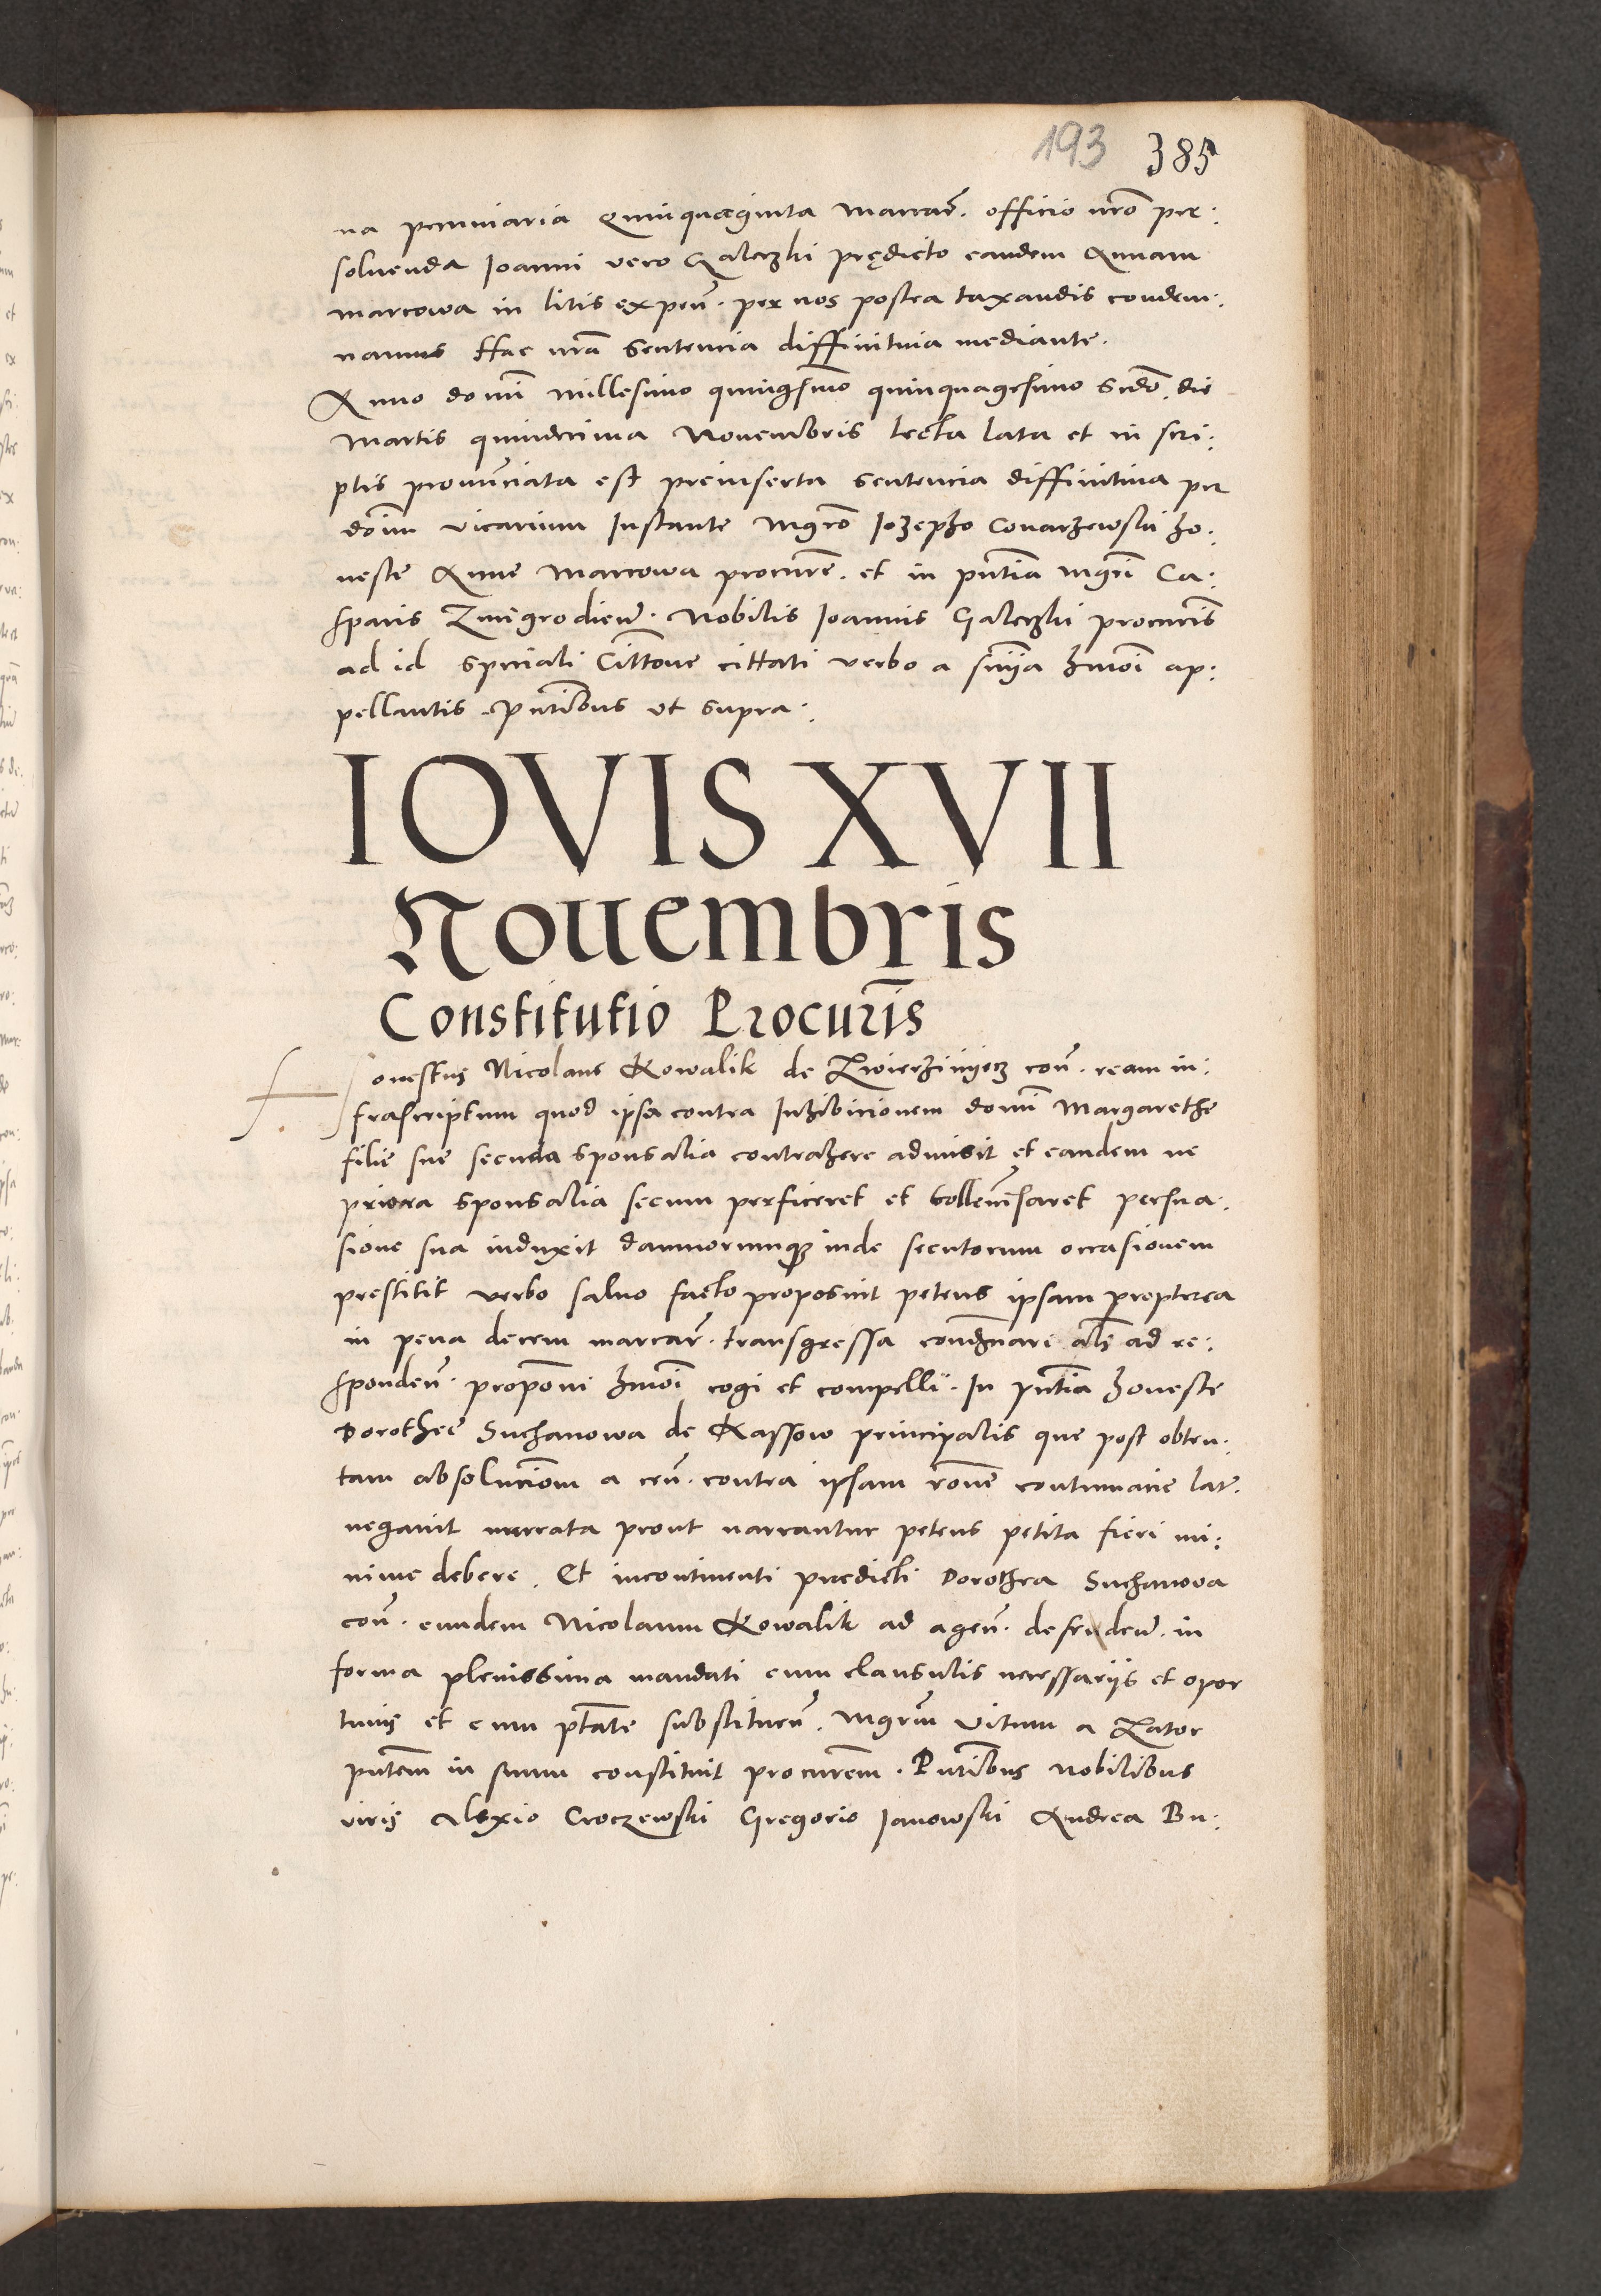 193 385
na pecuniaria Quinquaginta Marcar̃. officio nr̃o per:
soluenda Joanni vero Galeczki prędicto eandem Annam
marcowa in litis expeñ. per nos postea taxandis condem:
namus Hac nrã Sentencia diffinitiua mediante.
Anno domĩ millesimo quingẽsimo quinquagesimo Scdõ. die
Martis quindecima Nouembris lecta lata et in scri:
ptis pronunciata est preinserta Sentencia diffinitiua per
dõnm vicarium Instante Mgrõ Jozepho Conarzewski ho:
neste Anne Marcowa procurẽ. et in pñtia mgrĩ Ca:
sparis Zmegrodieñ. Nobilis Joannis Galeczki procuris
ad id speciali Cittone cittati verbo a snĩa hmõi ap:
pellantis. Pñtibus vt supra.
IOVIS XVII
Nouembris
Constitutio Procuris̃
Honestus Nicolaus Kowalik de Zwierziniecz coñ. ream in:
frascriptum quod ipsa contra Inhibicionem domĩ Margarethe
filie sue secunda sponsalia contrahere admisit et eandem ne
priora sponsalia secum perficeret et sollemẽsaret persua:
sione sua induxit damnorumq3 inde secutorum occasionem
prestitit verbo saluo facto proposuit petens ipsam propterea
in pena decem marcar̃. transgressa condẽnari als̃ ad re:
spondeñ. propõni hmõi cogi et compelli. In pñtia honeste
Dorothee Suchanowa de Kassow principalis que post obten:
tam absolucionẽm a ceñ. contra ipsam rõne contumacie lat.
negauit narrata prout narrantur petens petita fieri mi:
nime debere. Et incontinenti predicti Dorothea Suchanowa
coñ. eundem Nicolaum Kowalik ad ageñ. defendeñ. in
forma plenissima mandati cum clausulis necessarijs et opor
tunis et cum ptãte substitueñ. Mgrũm Vitum a Zator
pñtem in suum constituit procurem̃. Pñtibus nobilibus
viris Alexio Croczewski Gregorio Janowski Andrea Bu: